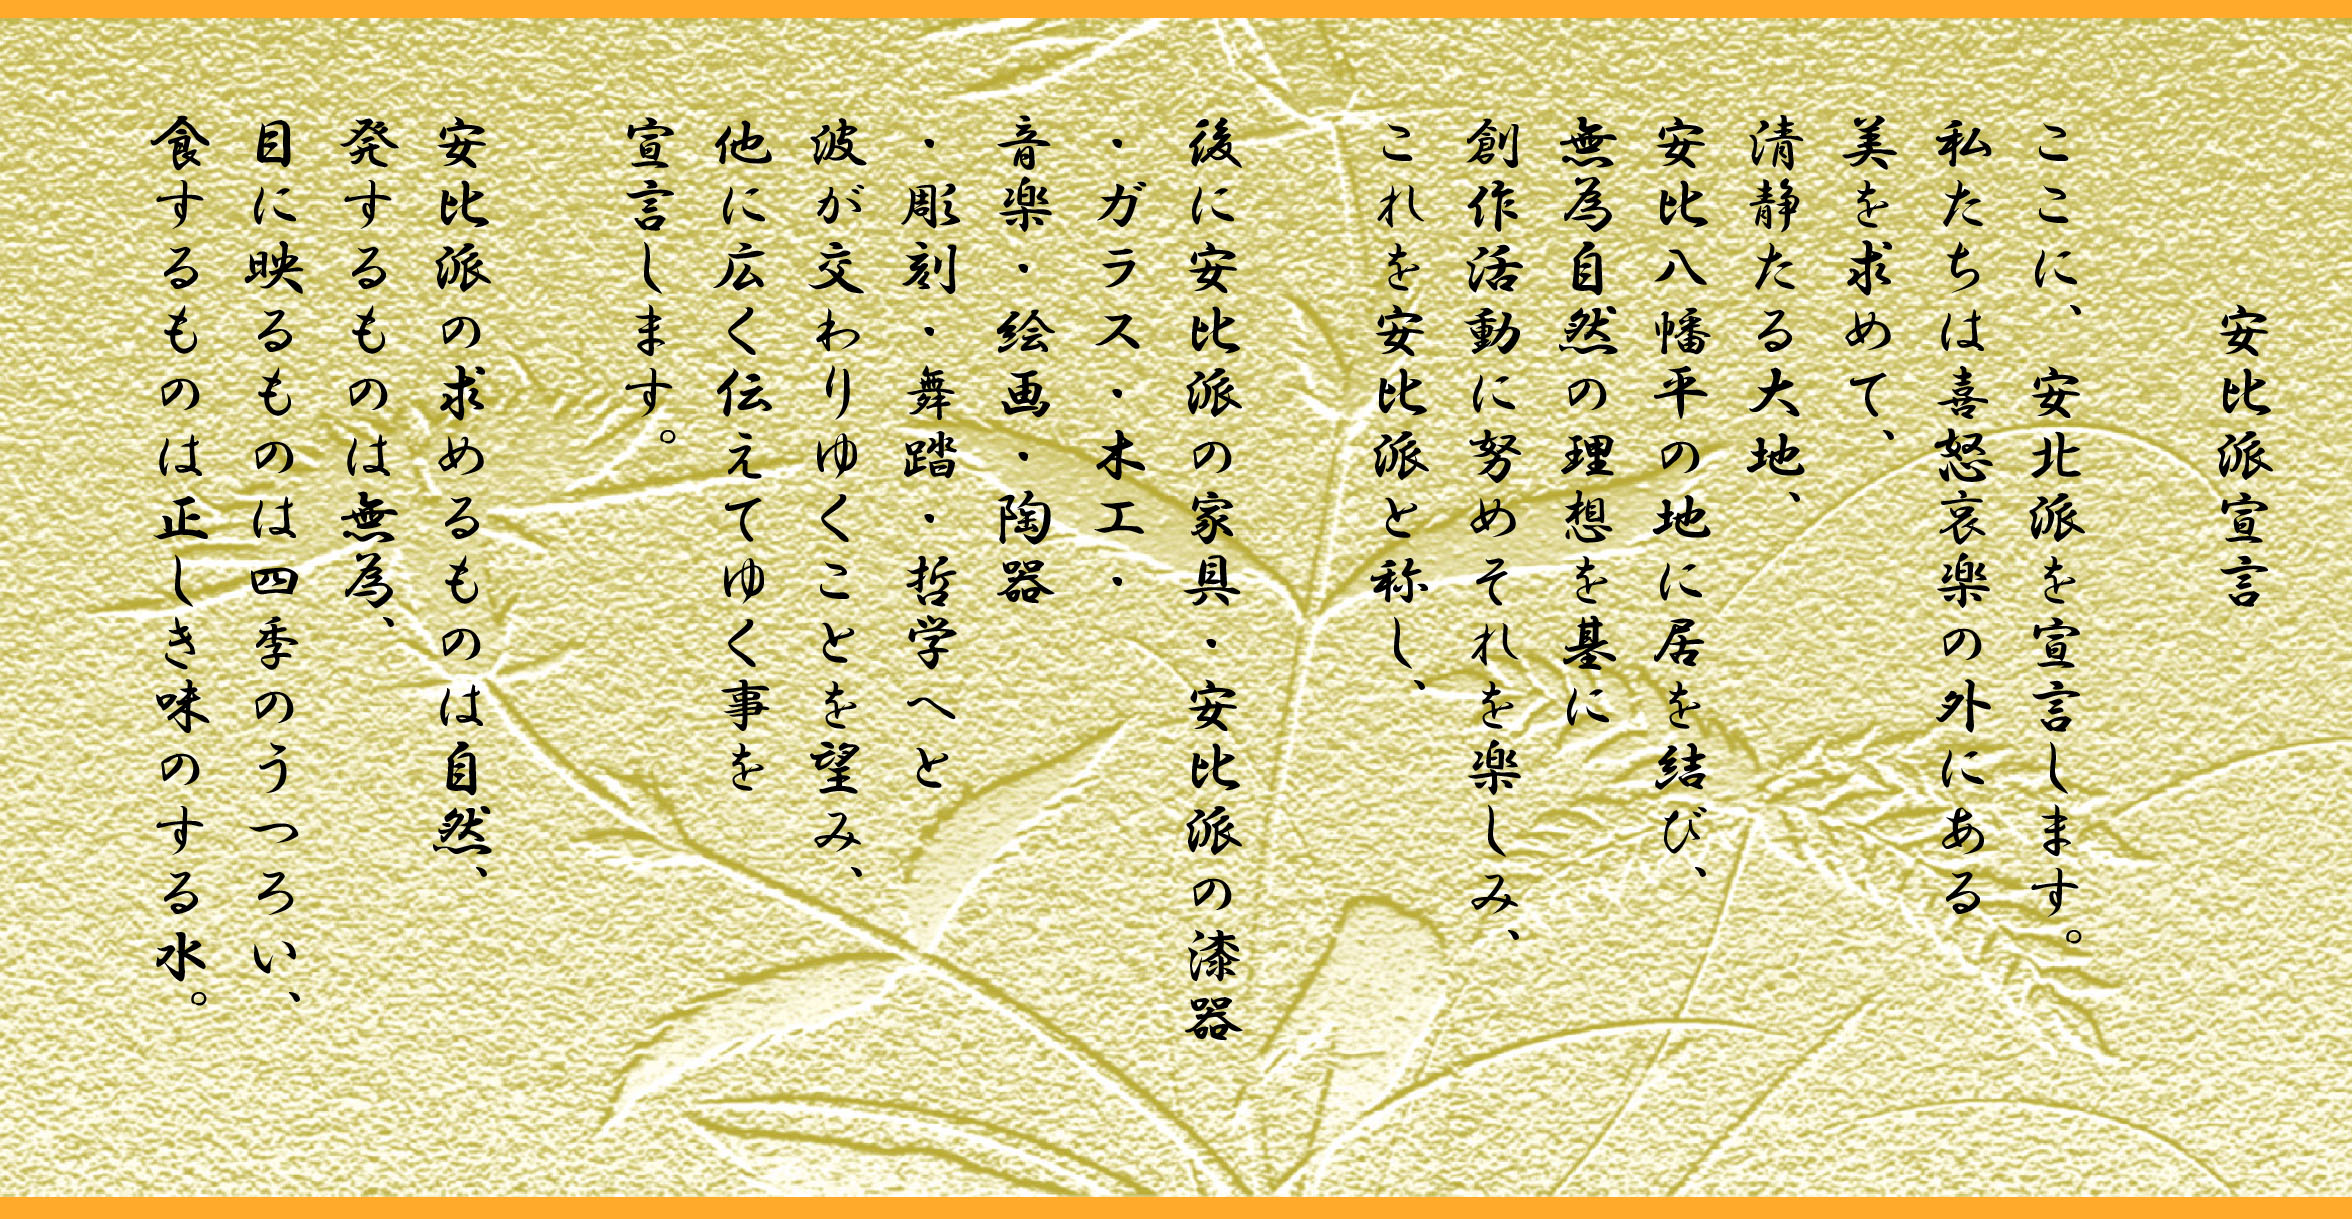 安比派宣言
ここに、安北派を宣言します。
私たちは喜怒哀楽の外にある
美を求めて、
清静たる大地、
安比八幡平の地に居を結び、
無為自然の理想を基に
創作活動に努めそれを楽しみ、
これを安比派と称し、
後に安比派の家具・安比派の漆器
・ガラス・木工・
音楽・絵画・陶器
・彫刻・舞踏・哲学へと
波が交わりゆくことを望み、
他に広く伝えてゆく事を
宣言します。
安比派の求めるものは自然、
発するものは無為、
目に映るものは四季のうつろい、
食するものは正しき味のする水。